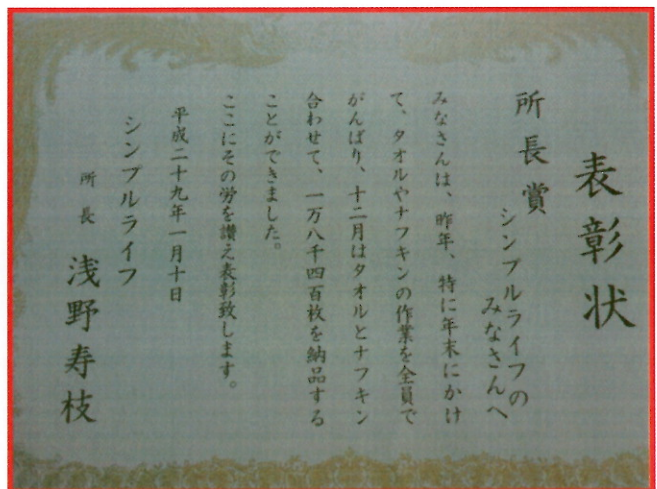 表彰状
所長賞
シンプルライフの
みなさんへ
みなさんは、昨年、特に年末にかけ
て、タオルやナフキンの作業を全員で
がんばり、十二月はタオルとナフキン
合わせて、一万八千四百枚を納品する
ことができました。
ここにその労を讃え表彰致します。
平成二十九年一月十日
シンプルライフ
所長 浅野寿枝